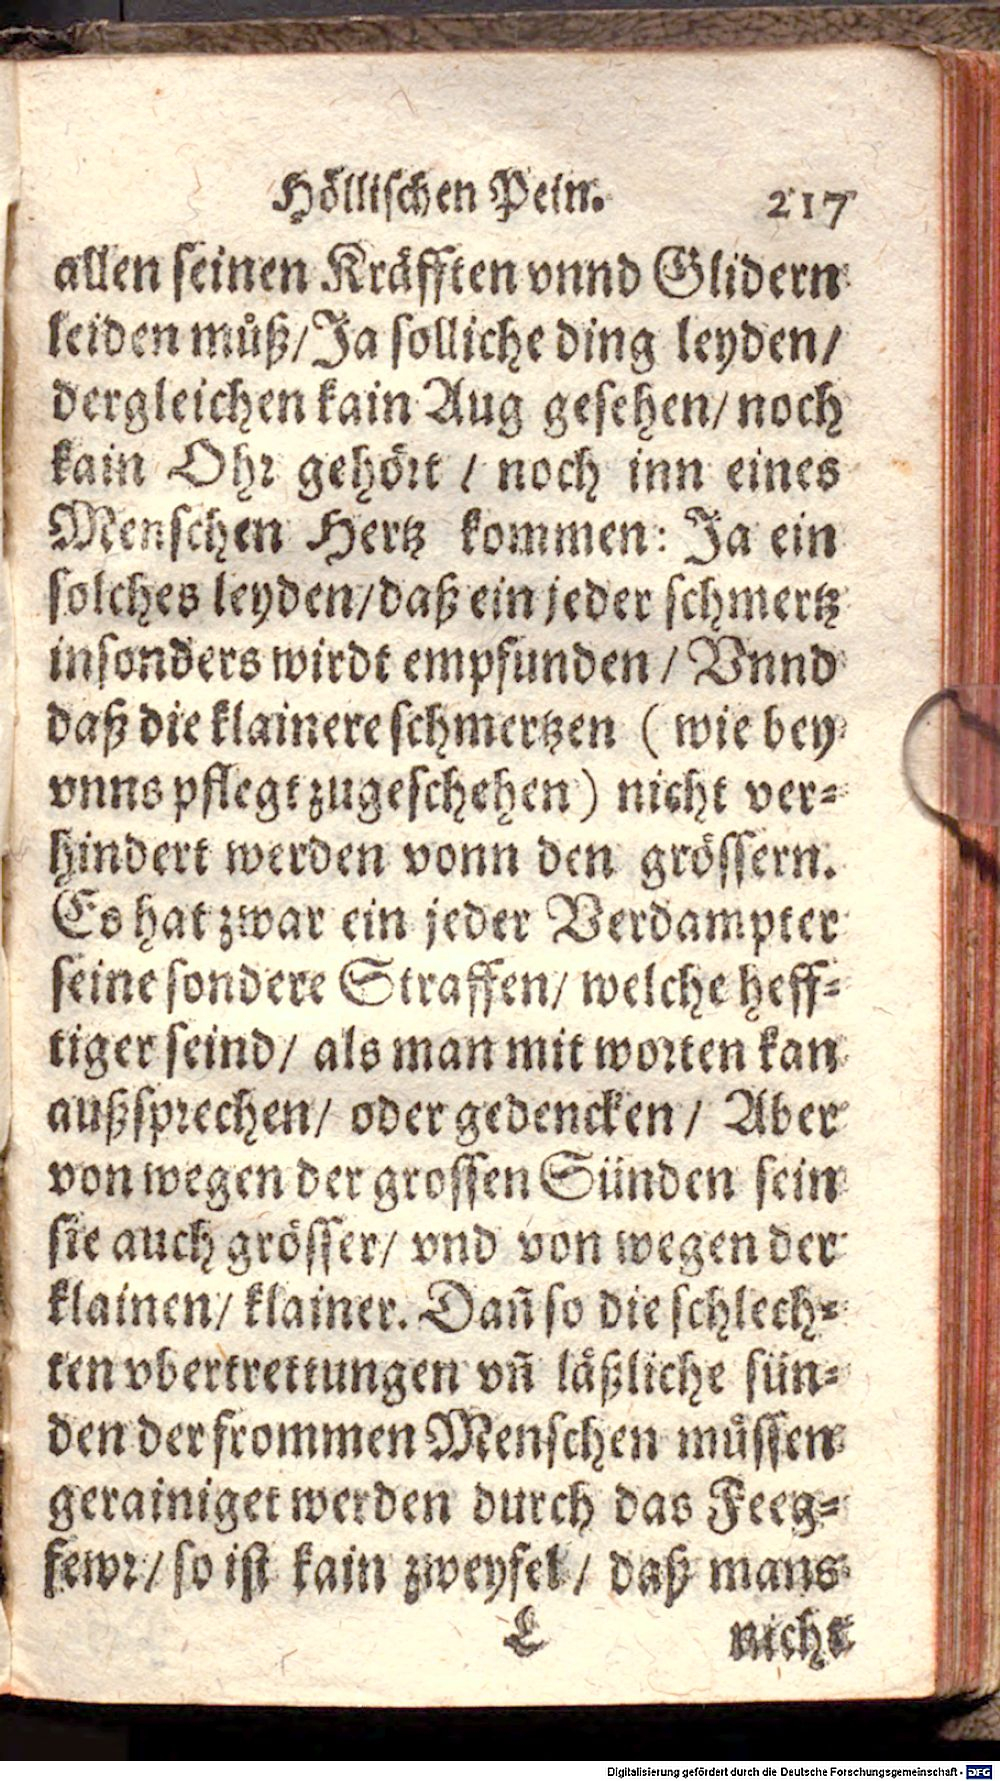 Höllischen Pein. 217
allen seinen Kräfften vnnd Glidern
leiden můß/ Ja solliche ding leyden/
dergleichen kain Aug gesehen/ noch
kain Ohr gehört / noch inn eines
Menschen Hertz kommen: Ja ein
solches leyden/ daß ein jeder schmertz
insonders wirdt empfunden / Vnnd
daß die klainere schmertzen ( wie bey
vnns pflegt zugeschehen ) nicht ver-
hindert werden vonn den grössern.
Es hat zwar ein jeder Verdampter
seine sondere Straffen/ welche heff-
tiger seind/ als man mit worten kan
außsprechen/ oder gedencken / Aber
von wegen der grossen Sünden sein
sie auch grösser/ vnd von wegen der
klainen/ klainer. Dañ so die schlech-
ten vbertrettungen vñ läßliche sün-
den der frommen Menschen müssen
gerainiget werden durch das Feeg-
fewr/ so ist kain zweyfel / daß mans
L nicht
Digitalisierung gefördert durch die Deutsche Forschungsgemeinschaft - DFG